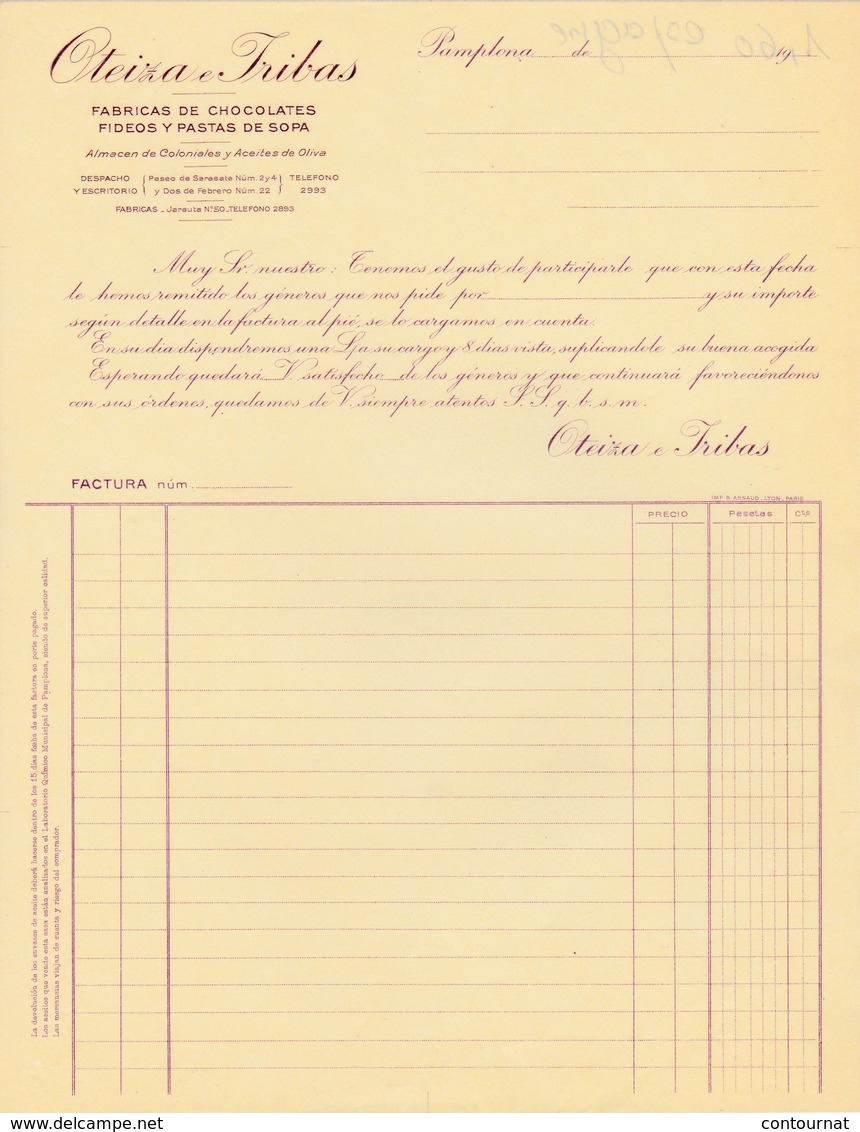 Oteiza e Tribas
FABRICAS DE CHOCOLATES
FIDEOS Y PASTAS DE SOPA
Almacen de Coloniales y Aceites de Oliva
DESPACHO Y ESCRITORIO { Paseo de Sarasate Núm. 2 y 4 y Dos de Febrero Núm. 22 } TELEFONO 2993
FABRICAS _ Jarauta Nº 50 _ TELEFONO 2893
Pamplona de 19
Muy Sr. nuestro: Tenemos el gusto de participarle que con esta fecha
le hemos remitido los géneros que nos pide por y su importe
según detalle en la factura al pié, se lo cargamos en cuenta.
En su dia dispondremos una L/ a su cargo y 8 dias vista, suplicandole su buena acogida
Esperando quedará V. satisfecho de los géneros y que continuará favoreciéndonos
con sus órdenes, quedamos de V. siempre atentos S. S. q. b. s. m.
Oteiza e Tribas
FACTURA núm.
IMP. B. ARNAUD, LYON, PARIS
PRECIO Pesetas Cts
La devolución de los envases de aceite deberá hacerse dentro de los 15 dias fecha de esta factura en porte pagado.
Los aceites que vende esta casa están analisados en el Laboratorio Químico Municipal de Pamplona, siendo de superior calidad.
Las mercancias viajan de cuenta y riesgo del comprador.
1,60 espagne
delcampe.net
contournat